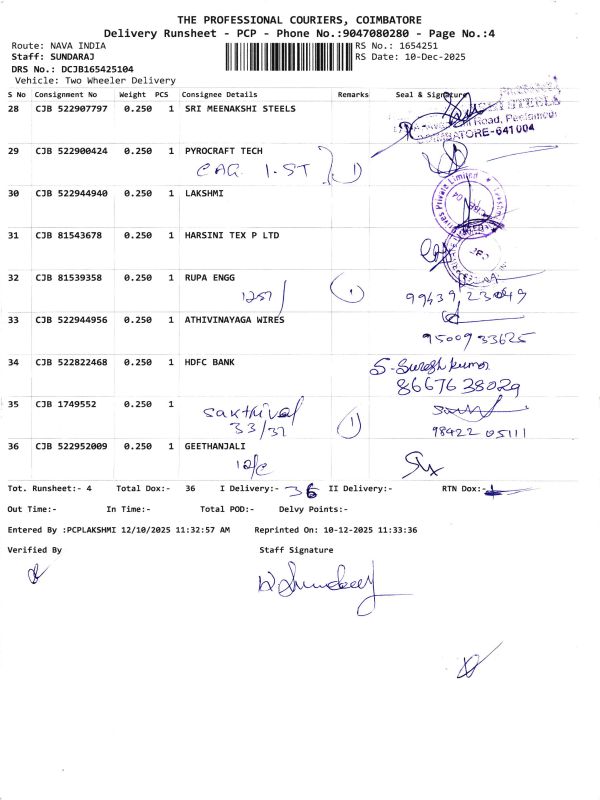 THE PROFESSIONAL COURIERS, COIMBATORE
Delivery Runsheet - PCP - Phone No.:9047080280 - Page No.:4
Route: NAVA INDIA RS No.: 1654251
Staff: SUNDARAJ RS Date: 10-Dec-2025
DRS No.: DCJB165425104
Vehicle: Two Wheeler Delivery
S No Consignment No Weight PCS Consignee Details Remarks Seal & Signature
28 CJB 522907797 0.250 1 SRI MEENAKSHI STEELS
STEELS
Road,
COIMBATORE-641 004
29 CJB 522900424 0.250 1 PYROCRAFT TECH
CAG 1.ST 1
30 CJB 522944940 0.250 1 LAKSHMI
Private Limited
31 CJB 81543678 0.250 1 HARSINI TEX P LTD
32 CJB 81539358 0.250 1 RUPA ENGG
1257 1 99439, 23049
33 CJB 522944956 0.250 1 ATHIVINAYAGA WIRES
9500933625
34 CJB 522822468 0.250 1 HDFC BANK S-Suresh kumar
8667638029
35 CJB 1749552 0.250 1
sakthivel
33/37 1 98422 05111
36 CJB 522952009 0.250 1 GEETHANJALI
12/c
Tot. Runsheet:- 4 Total Dox:- 36 I Delivery:- 36 II Delivery:- RTN Dox:-
Out Time:- In Time:- Total POD:- Delvy Points:-
Entered By :PCPLAKSHMI 12/10/2025 11:32:57 AM Reprinted On: 10-12-2025 11:33:36
Verified By Staff Signature